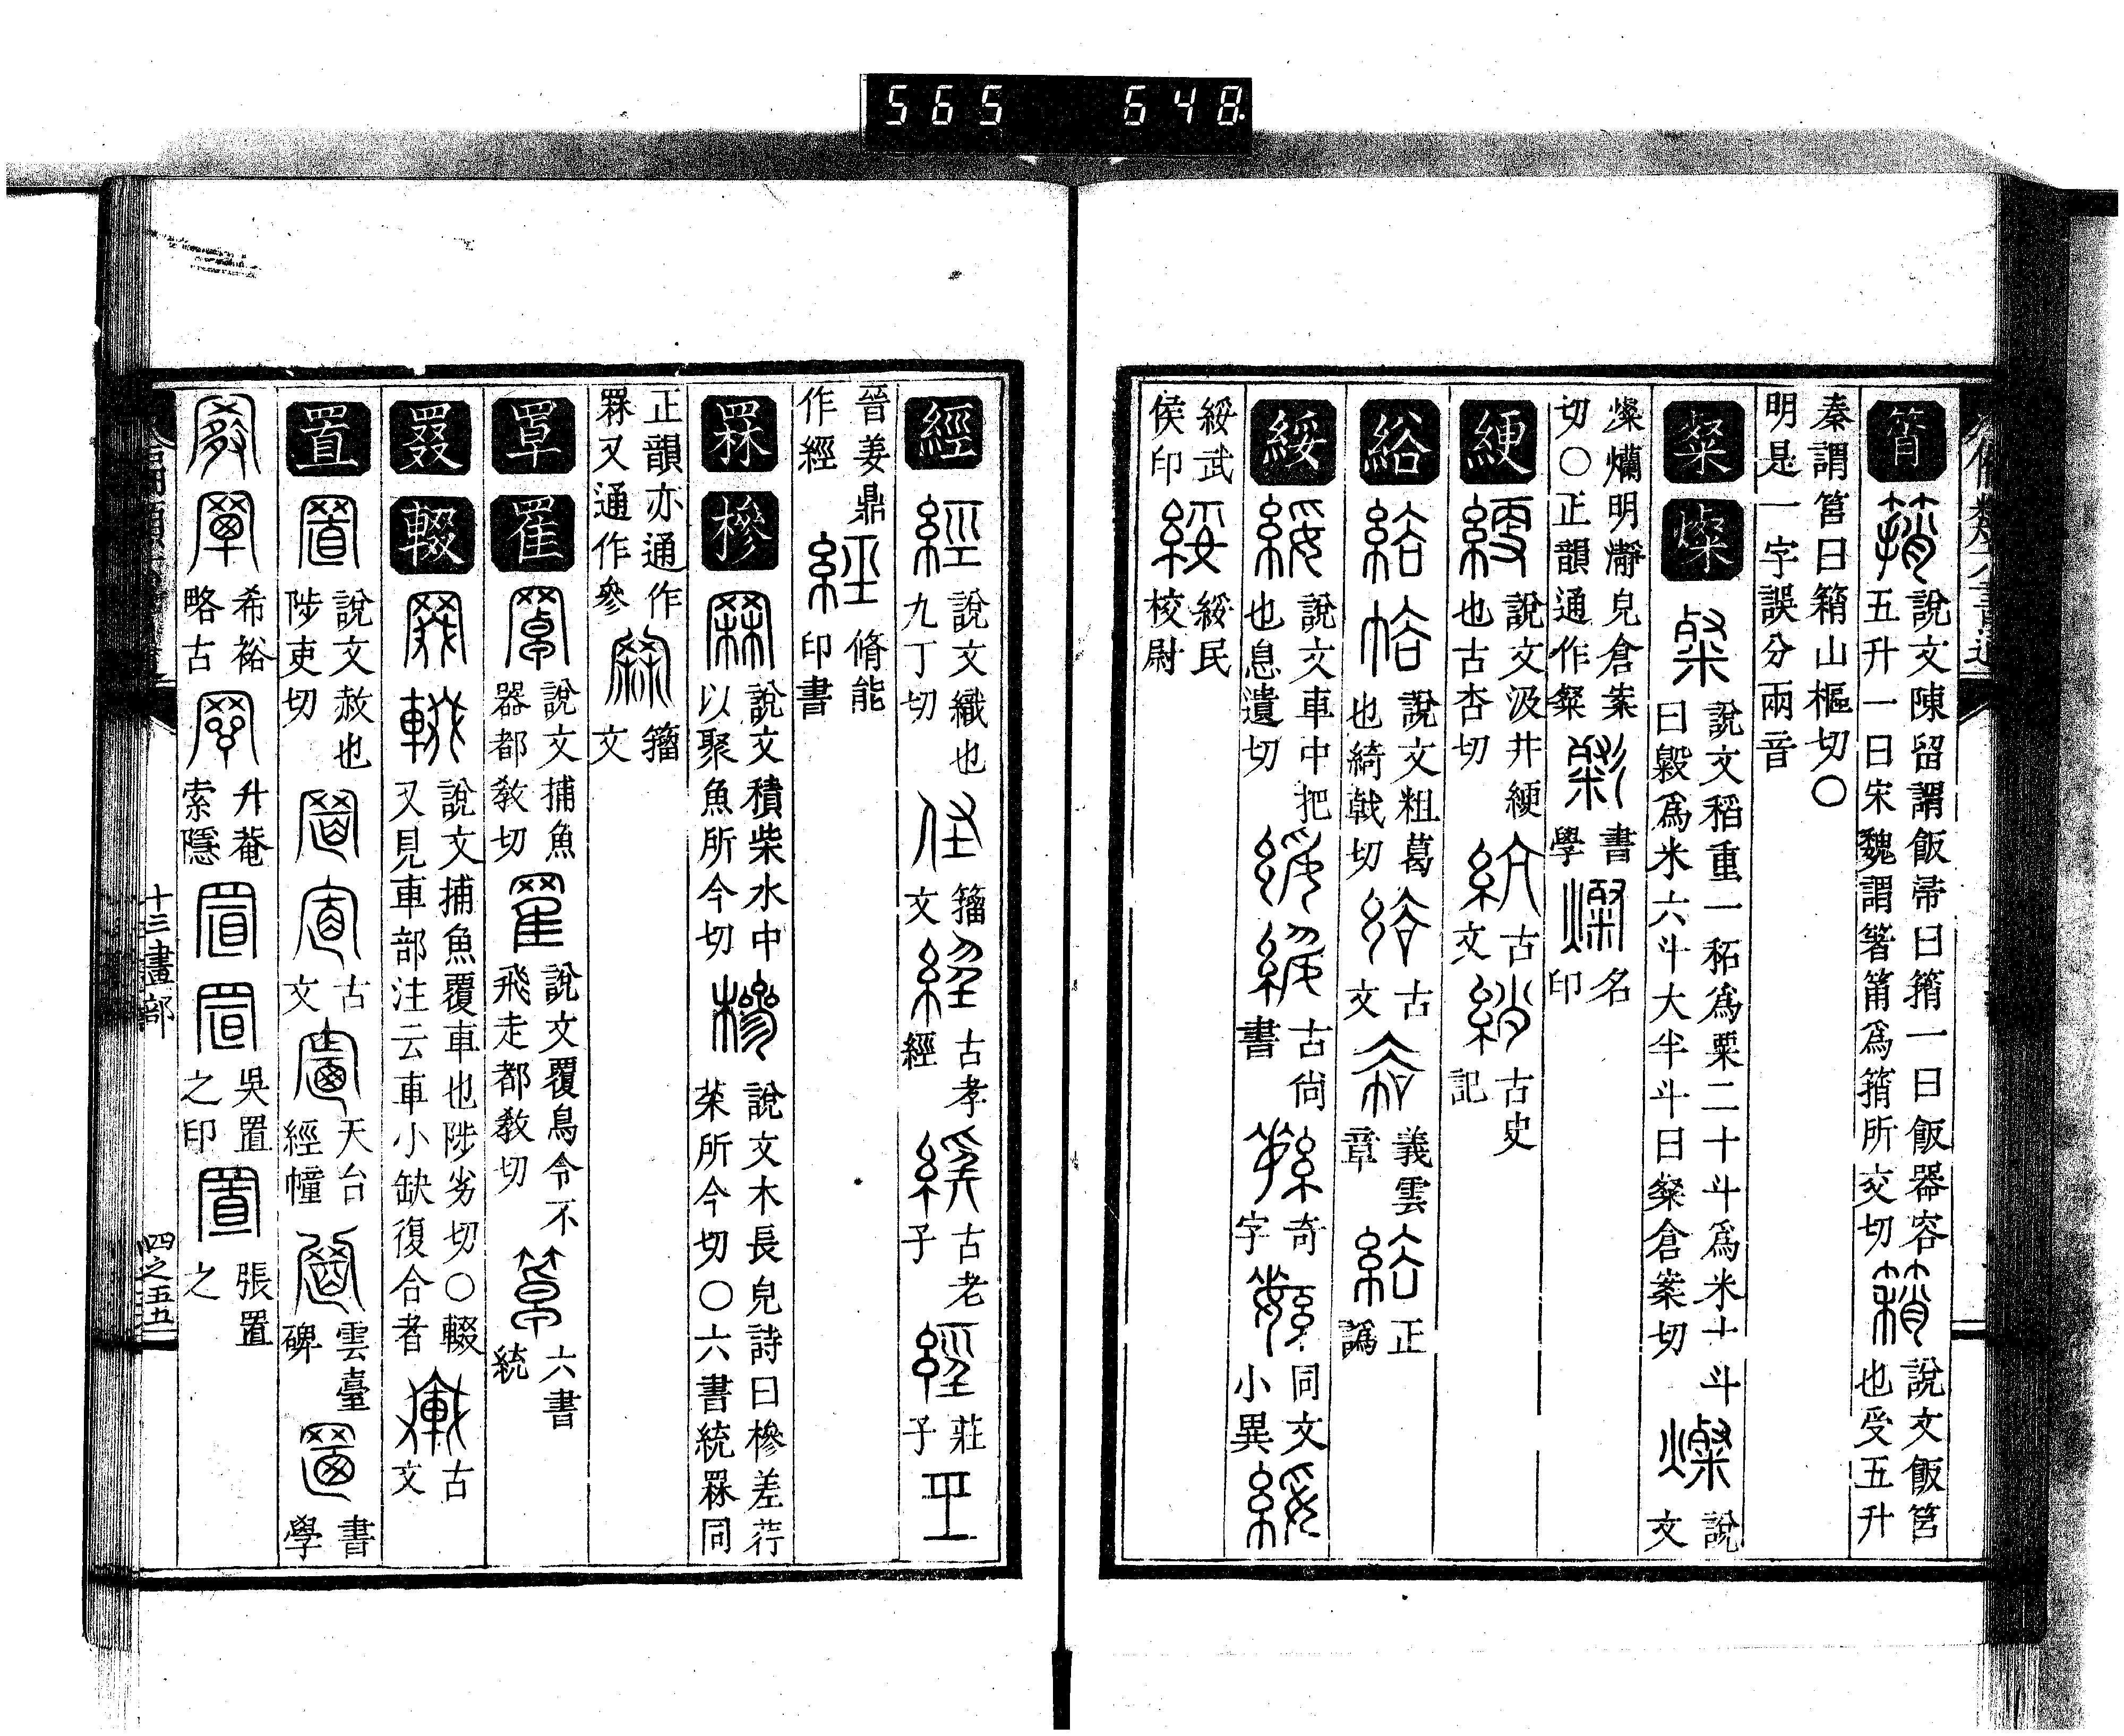 565 648
筲 䈰 說文陳留謂飯帚曰䈰一曰飯器容五升一曰宋魏謂箸筩爲䈰所交切 䈾 說文飯筥也受五升
秦謂筥曰䈾山樞切〇
明是一字誤分兩音
粲 燦 粲 說文稻重一䄷爲粟二十斗爲米十斗曰毇爲米六斗大半斗曰粲倉案切 燦 說文
燦爛明瀞皃倉案切〇正韻通作粲 書學 燦 名印
綆 綆 說文汲井綆也古杏切 古文 古史記
綌 綌 㕁 說文粗葛也綺戟切 古文 義雲章 正譌
綏 綏 說文車中把也息遺切 古尚書 奇字 同文小異 綏
綏武侯印 綏 綏民校尉
經 經 說文織也九丁切 籀文 古孝經 古老子 莊子 坙
晉姜鼎作經 經 脩能印書
罧 槮 罧 說文積柴水中以聚魚所今切 槮 說文木長皃詩曰槮差荇菜所今切〇六書統罧同
正韻亦通作罧又通作參 籀文
罩 䍜 罩 說文捕魚器都教切 䍜 說文覆鳥令不飛走都教切 六書統
叕 輟 說文捕魚覆車也陟劣切〇輟又見車部注云車小缺復合者 古文
置 置 說文赦也陟吏切 古文 天台經幢 雲臺碑 書學
希裕略古 升菴索隱 吳置之印 張置之
十三畫部
四之五五